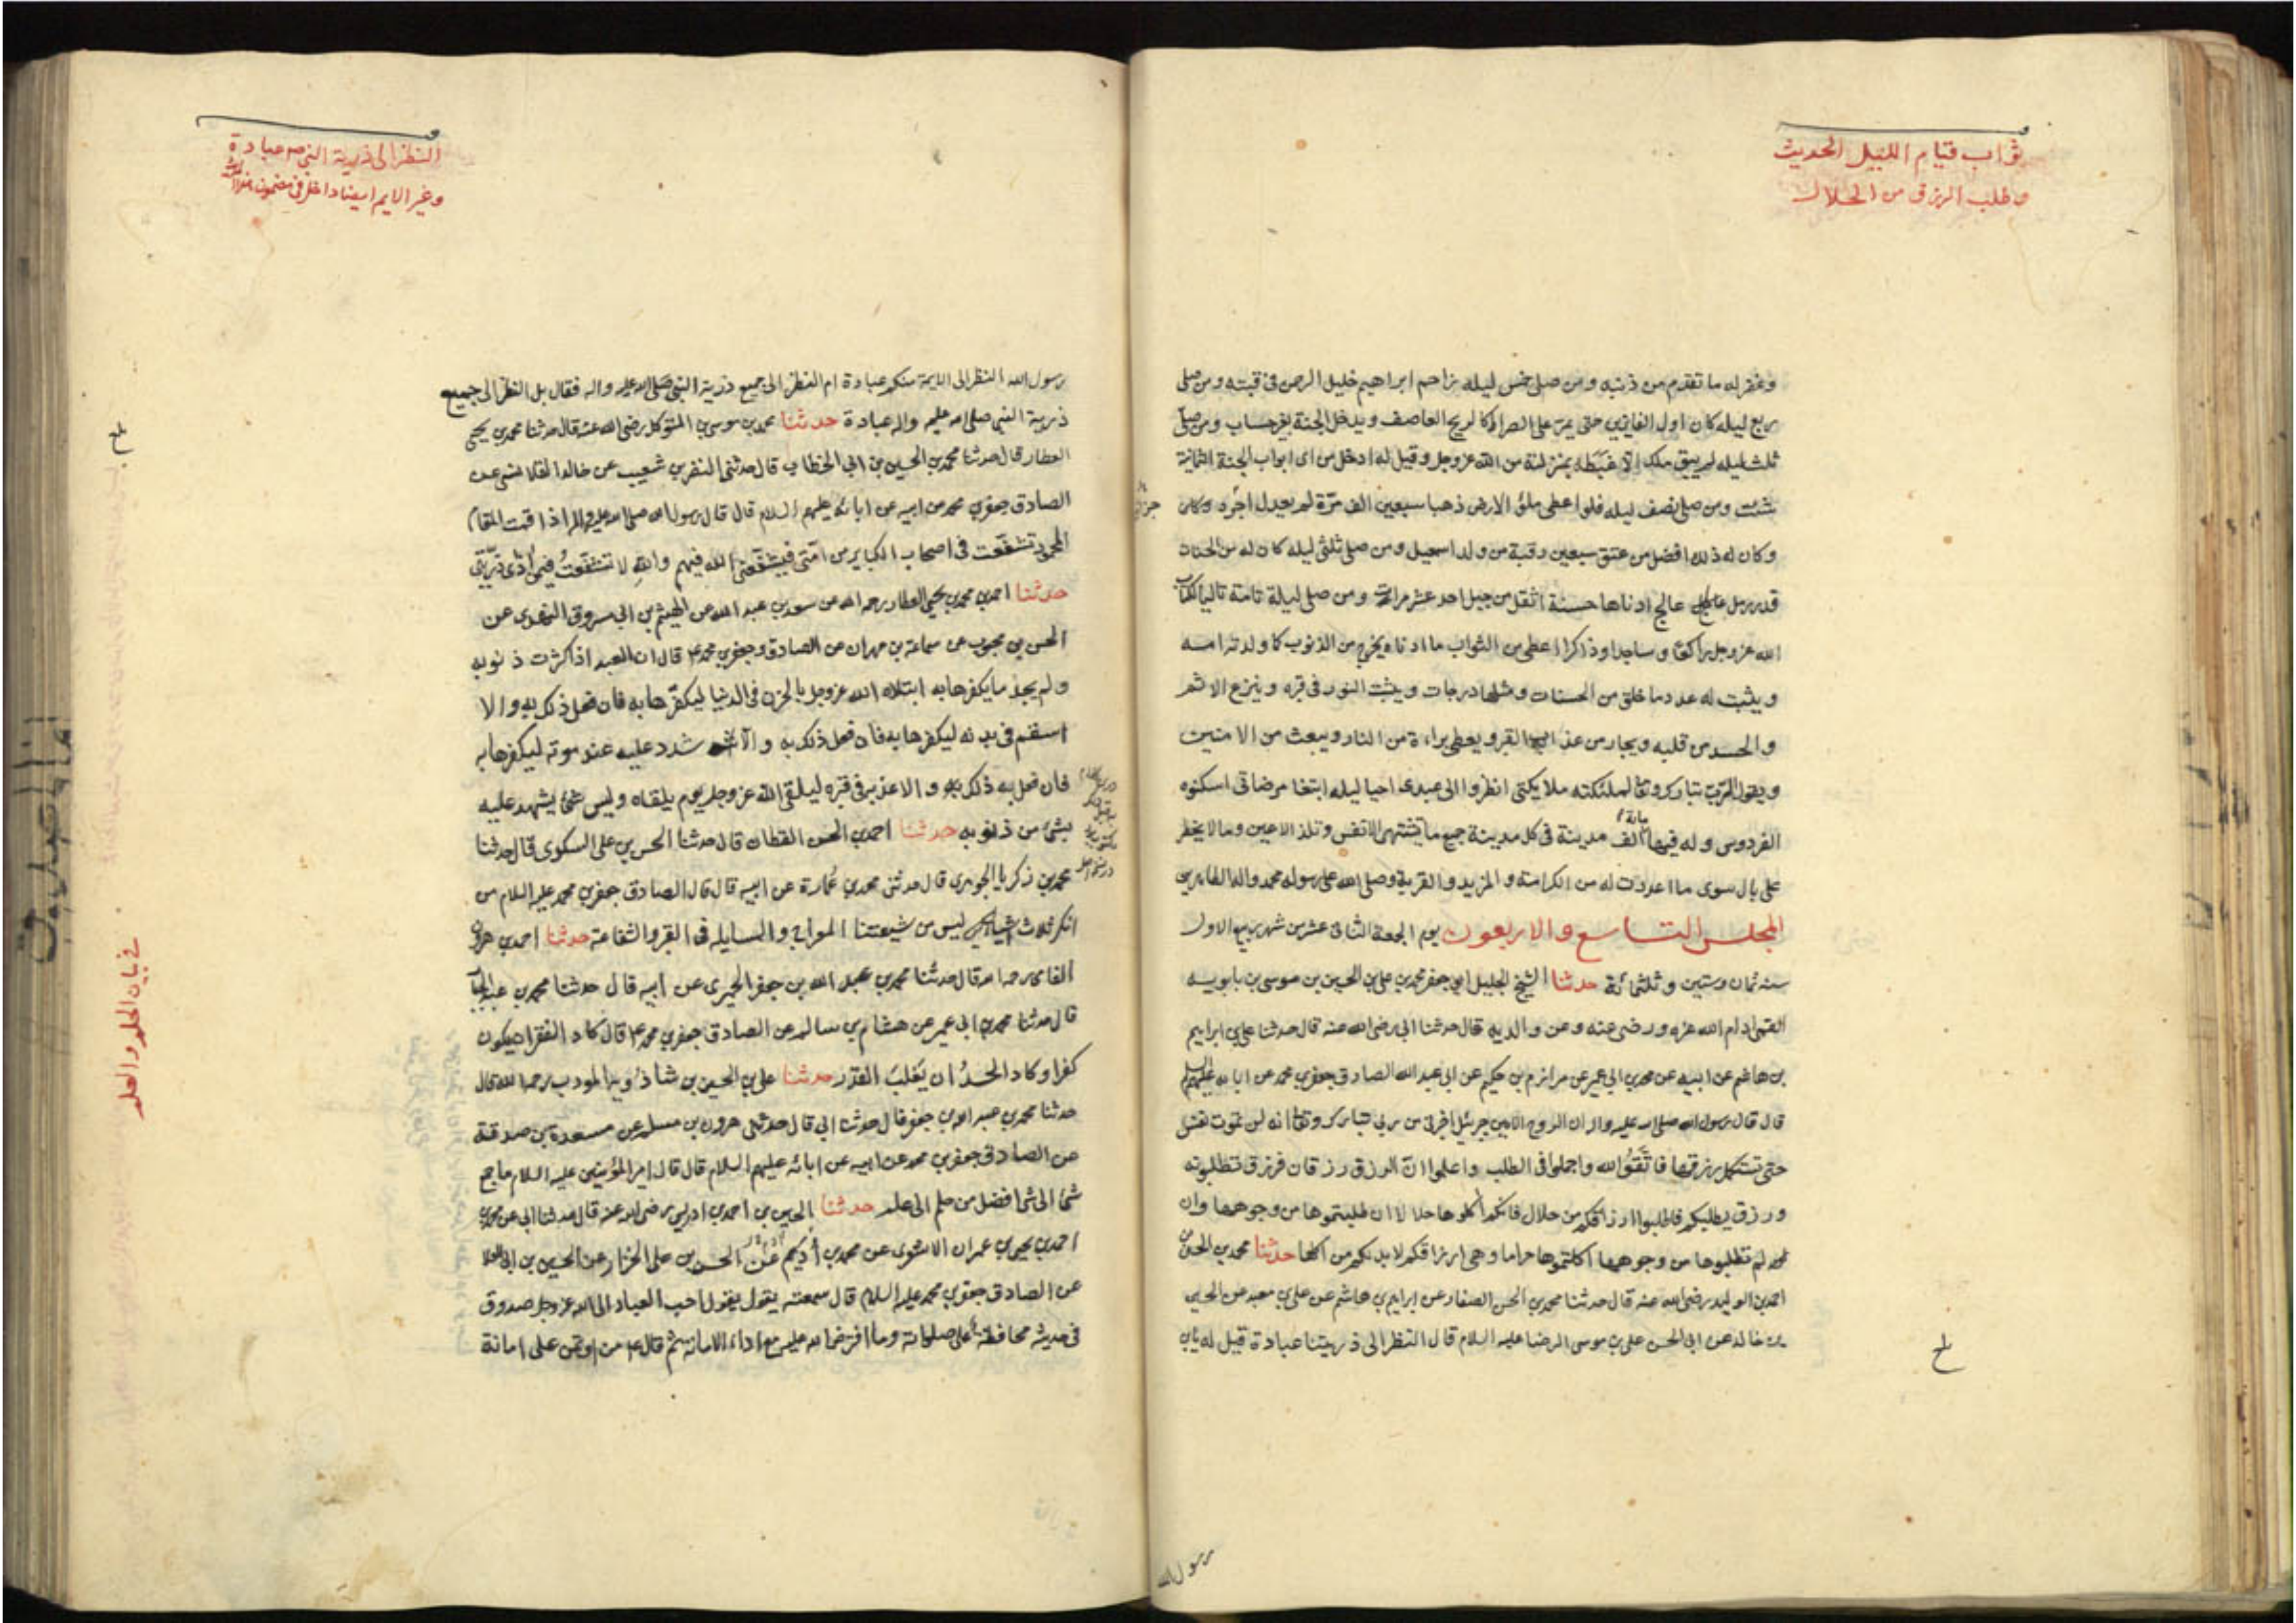 ثواب قيام الليل الحديث
وطلب الرزق من الحلال
وغفر له ما تقدم من ذنبه ومن صلى خمس ليله زاحم ابراهيم خليل الرحمن في قبته ومن صلى
ربع ليله كان اول الفايزين حتى يمر على الصراط كالريح العاصف ويدخل الجنة بغير حساب ومن صلى
ثلث ليله لم يبق ملك الا غبطه بمنزلته من الله عز وجل وقيل له ادخل من اى ابواب الجنة الثمانية
شئت ومن صلى نصف ليله فلو اعطى ملؤ الارض ذهبا سبعين الف مرة لم يعدل اجره وكان
وكان له ذلك افضل من عتق سبعين رقبة من ولد اسمعيل ومن صلى ثلثى ليله كان له من الحسنات
قدر رمل عالج ادناها حسنة اثقل من جبل احد عشر مرات ومن صلى ليلة تامة تاليا لكتاب
الله عز وجل راكعا وساجدا وذاكرا اعطى من الثواب ما ادناه يخرج من الذنوب كما ولدته امه
ويثبت له عدد ما خلق من الحسنات ومثلها درجات ويثبت النور في قبره وينزع الاثم
والحسد من قلبه ويجار من عذاب القبر ويعطى براءة من النار ويبعث من الامنين
ويقول الرب تبارك وتعا لملئكته ملايكتى انظروا الى عبدى احيا ليله ابتغا مرضاتى اسكنوه
الفردوس وله فيها مائة الف مدينة في كل مدينة جميع ما تشتهى الانفس وتلذ الاعين وما لا يخطر
على بال سوى ما اعددت له من الكرامة والمزيد والقربة وصلى الله على رسوله محمد واله الطاهرين
المجلس التاسع والاربعون يوم الجمعة الثانى عشر من شهر ربيع الاول
سنه ثمان وستين وثلثمائة حدثنا الشيخ الجليل ابو جعفر محمد بن على بن الحسين بن موسى بن بابويه
القمى ادام الله عزه ورضى عنه وعن والديه قال حدثنا ابى رضى الله عنه قال حدثنا على بن ابراهيم
بن هاشم عن ابيه عن محمد بن ابى عمير عن مرازم بن حكيم عن ابى عبد الله الصادق جعفر بن محمد عن ابائه عليهم السلم
قال قال رسول الله صلى الله عليه واله ان الروح الامين جبرئيل اخبرنى عن ربى تبارك وتعا انه لن تموت نفس
حتى تستكمل رزقها فاتقوا الله واجملوا فى الطلب واعلموا ان الرزق رزقان فرزق تطلبونه
ورزق يطلبكم فاطلبوا ارزاقكم من حلال فانكم اكلوها حلالا ان طلبتموها من وجوهها وان
لم تطلبوها من وجوهها اكلتموها حراما وهى ارزاقكم لا بد لكم من اكلها حدثنا محمد بن الحسن بن
احمد بن الوليد رضى الله عنه قال حدثنا محمد بن الحسن الصفار عن ابراهيم بن هاشم عن على بن معبد عن الحسين
بن خالد عن ابى الحسن على بن موسى الرضا عليه السلام قال النظر الى ذريتنا عبادة قيل له يابن
بلغ
رسول الله
النظر الى ذرية النبى ص عبادة
وغير الايم ايضا داخل فى مضمون
رسول الله النظر الى الايمة منكم عبادة ام النظر الى جميع ذرية النبى صلى الله عليه واله فقال بل النظر الى جميع
ذرية النبى صلى الله عليه واله عبادة حدثنا محمد بن موسى بن المتوكل رضى الله عنه قال حدثنا محمد بن يحيى
العطار قال حدثنا محمد بن الحسين بن ابى الخطاب قال حدثنى النضر بن شعيب عن خالد القلانسى عن
الصادق جعفر بن محمد عن ابيه عن ابائه عليهم السلام قال قال رسول الله صلى الله عليه واله اذا قمت المقام
المحمود تشفعت فى اصحاب الكباير من امتى فيشفعنى الله فيهم والله لا تشفعت فيمن اذى ذريتى
حدثنا احمد بن محمد بن يحيى العطار رحمه الله عن سعد بن عبد الله عن الهيثم بن ابى مسروق النهدى عن
الحسن بن محبوب عن سماعة بن مهران عن الصادق جعفر بن محمد ع قال ان العبد اذا كثرت ذنوبه
ولم يجد ما يكفرها به ابتلاه الله عز وجل بالحزن فى الدنيا ليكفرها به فان فعل ذلك به والا
اسقم فى بدنه ليكفرها به فان فعل ذلك به والا شدد عليه عند موته ليكفرها به
فان فعل به ذلك به والا عذبه فى قبره ليلقى الله عز وجل يوم يلقاه وليس شئ يشهد عليه
بشئ من ذنوبه حدثنا احمد بن الحسن القطان قال حدثنا الحسن بن على السكرى قال حدثنا
محمد بن زكريا الجوهرى قال حدثنى محمد بن عمارة عن ابيه قال قال الصادق جعفر بن محمد عليه السلام من
انكر ثلاث اشياء ليس من شيعتنا المعراج والمسايله فى القبر والشفاعة حدثنا احمد بن هرون
الفامى رحمه الله قال حدثنا محمد بن عبد الله بن جعفر الحميرى عن ابيه قال حدثنا محمد بن عبد الجبار
قال حدثنا محمد بن ابى عمير عن هشام بن سالم عن الصادق جعفر بن محمد ع قال كاد الفقر ان يكون
كفرا وكاد الحسد ان يغلب القدر حدثنا على بن الحسين بن شاذويه المودب رحمه الله قال
حدثنا محمد بن عبد الله بن جعفر قال حدثنا ابى قال حدثنى هرون بن مسلم عن مسعدة بن صدقة
عن الصادق جعفر بن محمد عن ابيه عن ابائه عليهم السلام قال قال امير المؤمنين عليه السلام ما جمع
شئ الى شئ افضل من حلم الى علم حدثنا الحسين بن احمد بن ادريس رضى الله عنه قال حدثنا ابى عن محمد بن
احمد بن يحيى بن عمران الاشعرى عن محمد بن ادم عن الحسن بن على الخزاز عن الحسين بن ابى العلا
عن الصادق جعفر بن محمد عليه السلام قال سمعته يقول يقول احب العباد الى الله عز وجل صدوق
فى حديثه محافظ على صلواته وما افترض الله عليه مع اداء الامانة ثم قال ع من اوتمن على امانة
بلغ
فى بيان الحلم والعلم